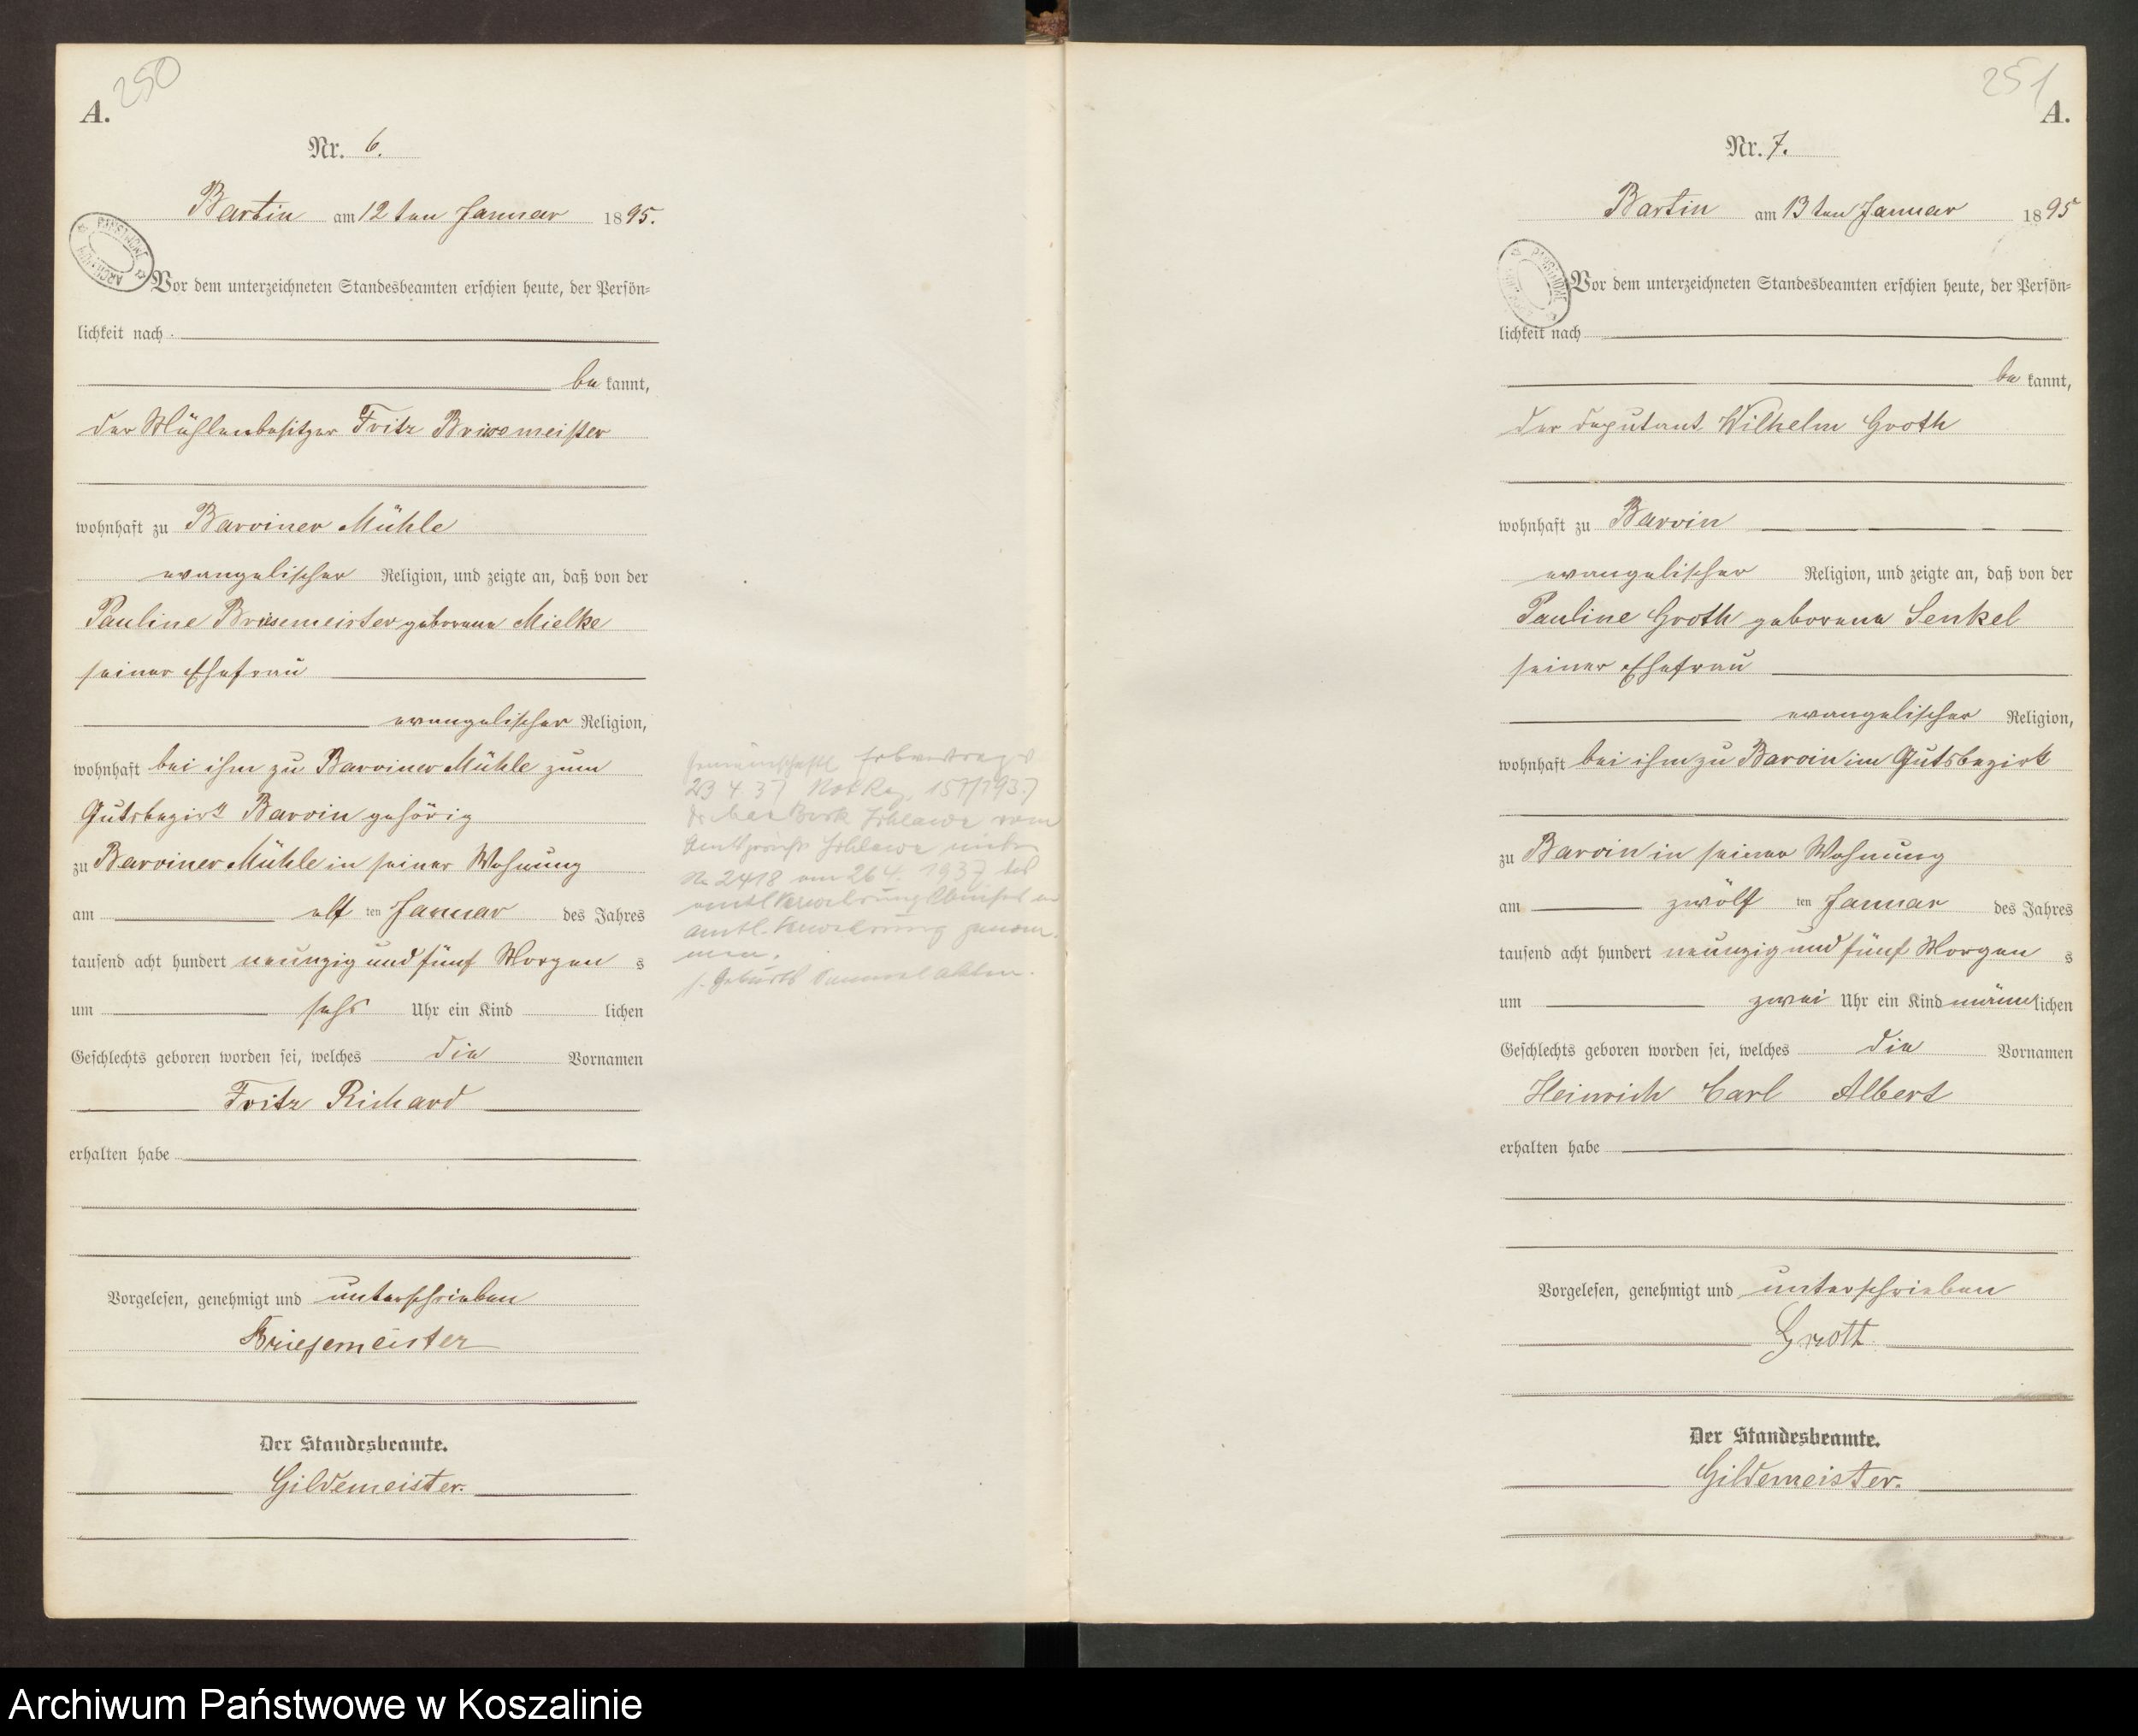 250
A.
Nr. 6.
Bartin am 12ten Januar 1895.
Vor dem unterzeichneten Standesbeamten erschien heute, der Persön-
lichkeit nach
be kannt,
der Mühlenbesitzer Fritz Briesemeister
wohnhaft zu Barviner Mühle
evangelischer Religion, und zeigte an, daß von der
Pauline Briesemeister geborene Mielke
seiner Ehefrau
evangelischer Religion,
wohnhaft bei ihm zu Barviner Mühle zum
Gutsbezirk Barvin gehörig
zu Barviner Mühle in seiner Wohnung
am elf ten Januar des Jahres
tausend acht hundert neunzig und fünf Morgens
um sechs Uhr ein Kind lichen
Geschlechts geboren worden sei, welches die Vornamen
Fritz Richard
erhalten habe
Vorgelesen, genehmigt und unterschrieben
Briesemeister
Der Standesbeamte.
Gildemeister.
Erbvertrag v
23 4. 37 Not Reg. 157/1937
Schlawe vom
Amtsgericht Schlawe unter
No 2418 am 26 4. 1937
amtl. Verwahrung genom-
men.
251
A.
Nr. 7.
Bartin am 13ten Januar 1895
Vor dem unterzeichneten Standesbeamten erschien heute, der Persön-
lichkeit nach
be kannt,
der Deputant Wilhelm Groth
wohnhaft zu Barvin
evangelischer Religion, und zeigte an, daß von der
Pauline Groth geborene Senkel
seiner Ehefrau
evangelischer Religion,
wohnhaft bei ihm zu Barvin im Gutsbezirk
zu Barvin in seiner Wohnung
am zwölf ten Januar des Jahres
tausend acht hundert neunzig und fünf Morgens
um zwei Uhr ein Kind männlichen
Geschlechts geboren worden sei, welches die Vornamen
Heinrich Carl Albert
erhalten habe
Vorgelesen, genehmigt und unterschrieben
Grott
Der Standesbeamte.
Gildemeister.
Archiwum Państwowe w Koszalinie